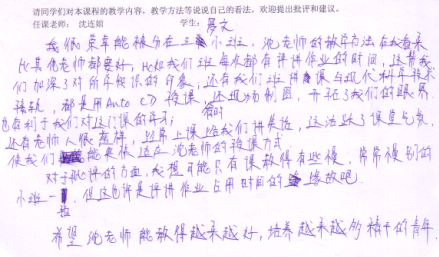 请同学们对本课程的教学内容、教学方法等说说自己的看法,欢迎提出批评和建议。
任课老师: 沈连婠 学生: 文
我很荣幸能被分在三 小班,沈老师的教学方法在我看来
比其他老师都要好,比如我们班每次都有评讲作业的时间,这帮我
们加深了对所学知识的印象;还有我们班讲课与现代科学技术
接轨,都是用Auto CD授课,还现场制图,开拓了我们的眼界,
也有利于我们对这门课的学习;
还有老师人很慈祥,经常上课给我们讲笑话,这活跃了课堂气氛,
使我们能更快适应沈老师的授课方式.
对于批评的方面,我想可能只有课教得有些慢,常常慢别的
小班一 ,但这也许是评讲作业占用时间的缘故吧.
希望沈老师能教得越来越好,培养越来越多精干的青年.